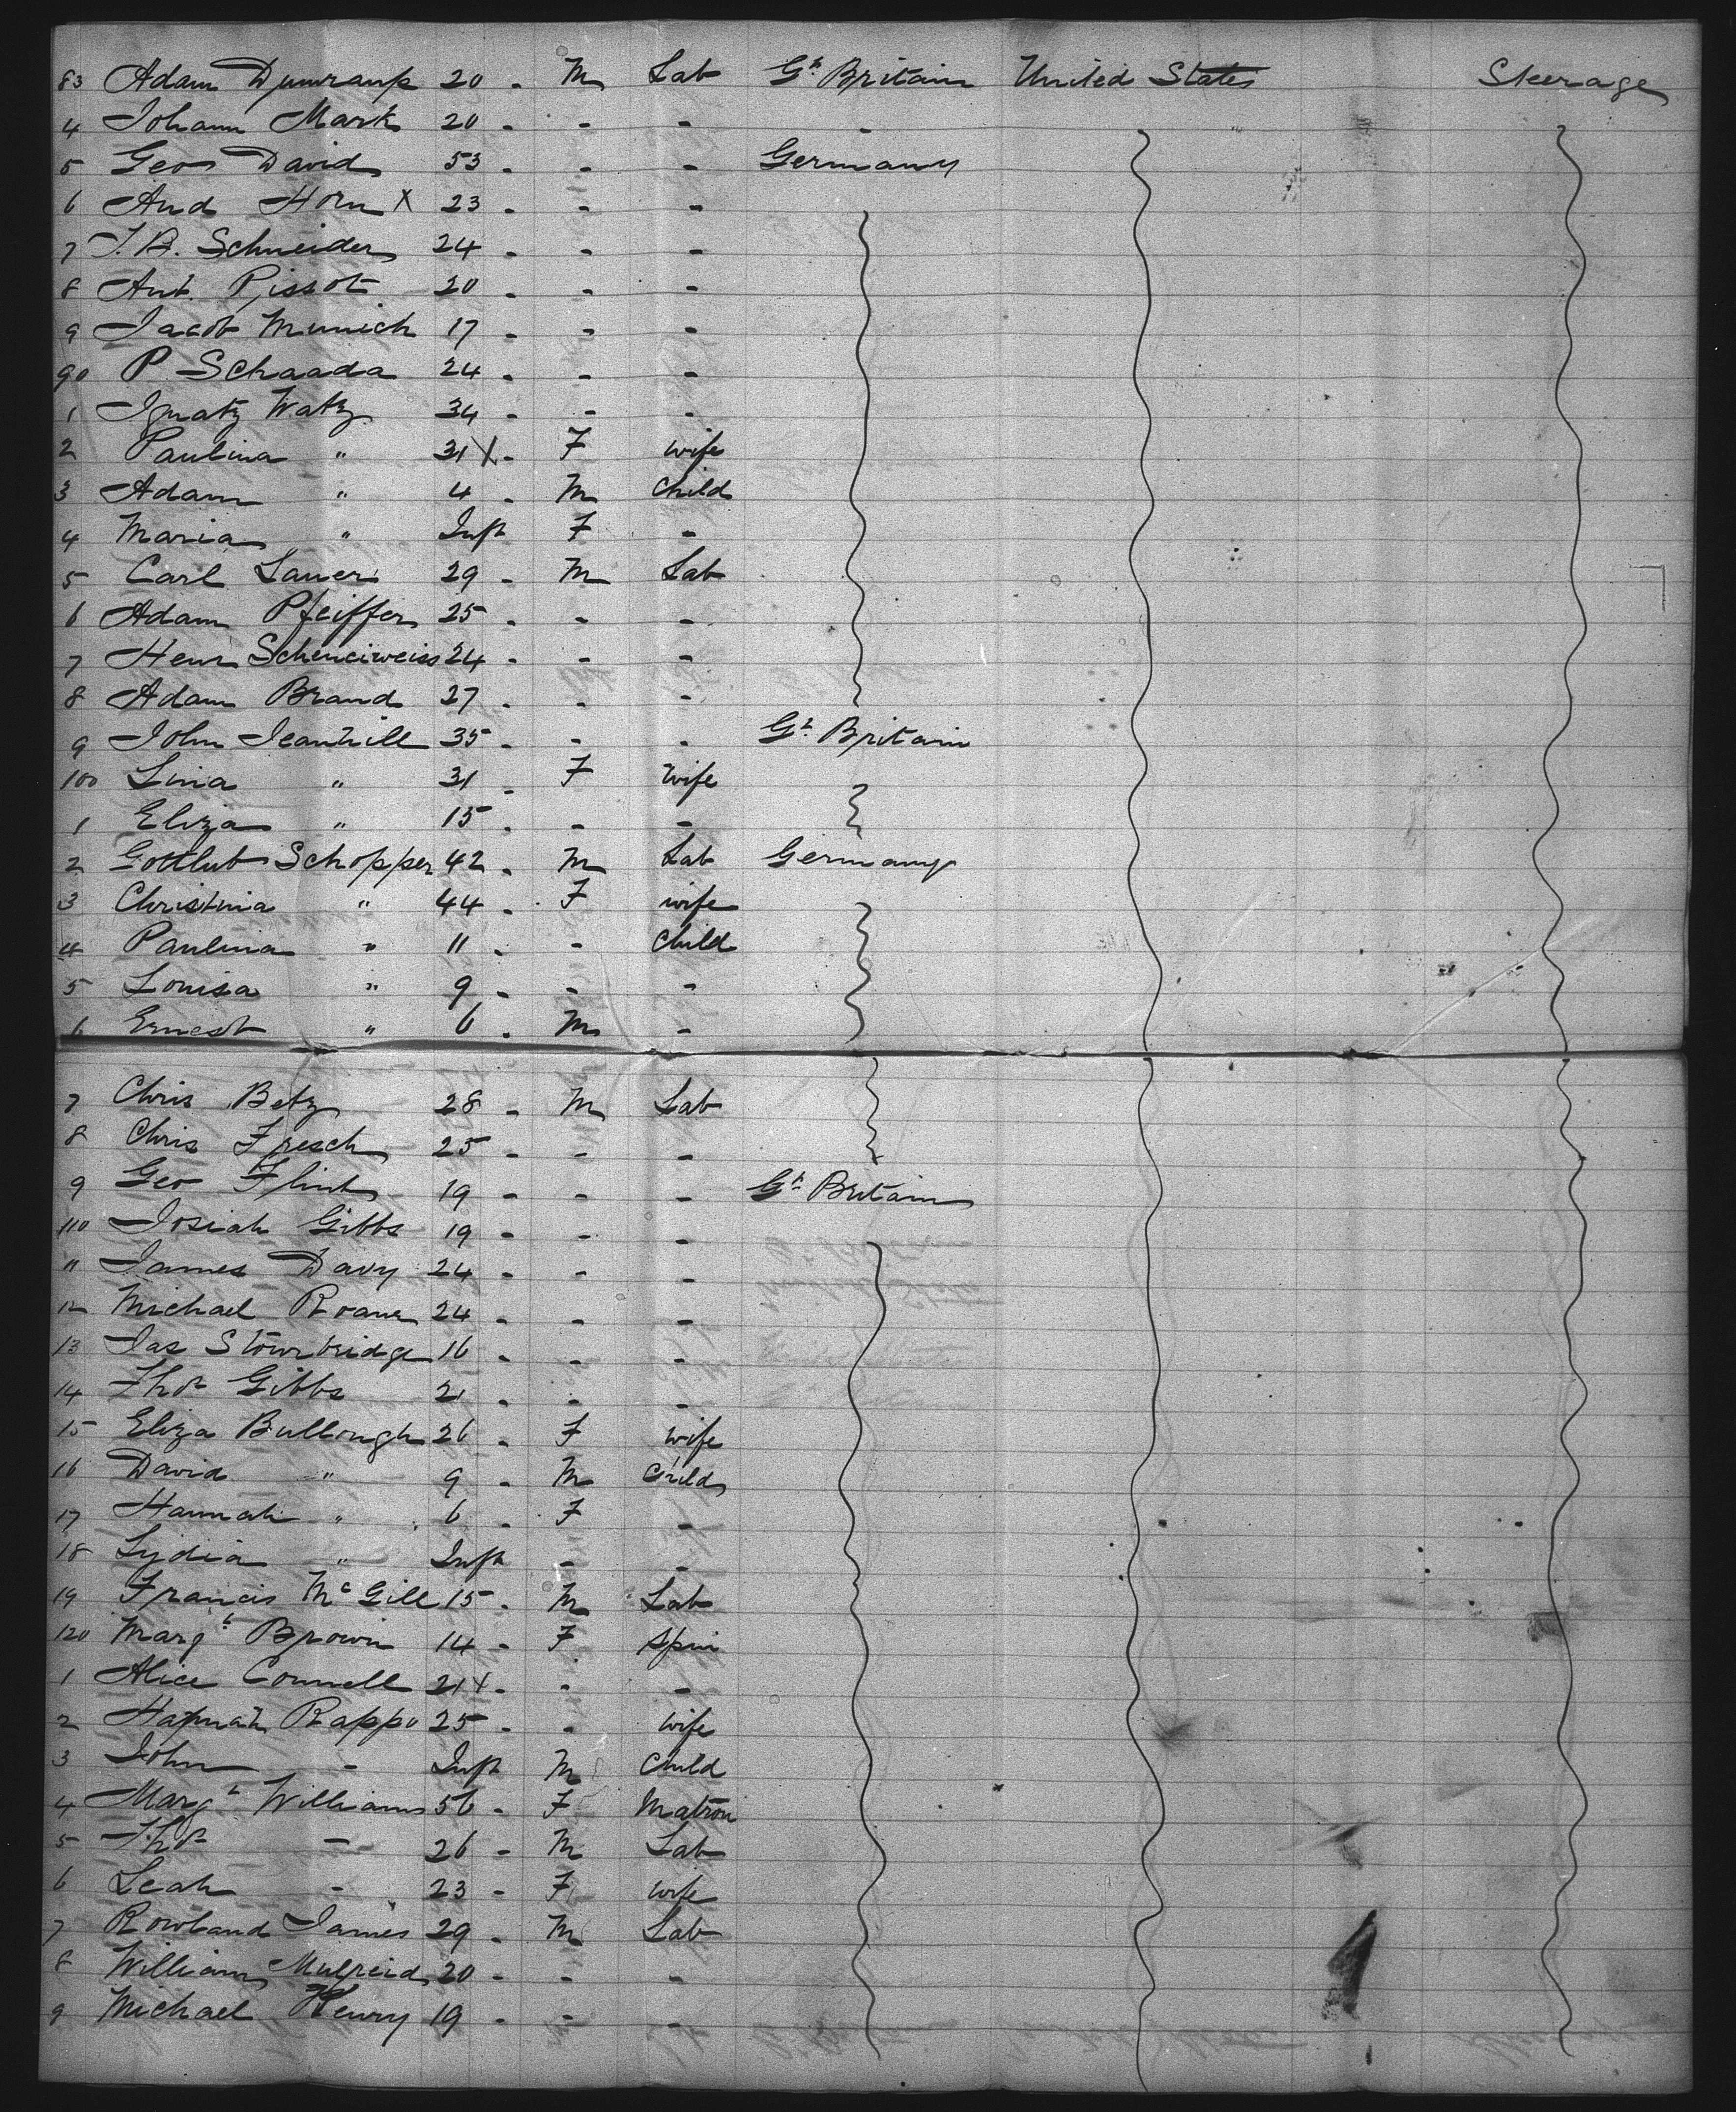 83 Adam Dumraup 20 - M Lab Gt. Britain United States Steerage
4 Johann Mark 20 - - - -
5 Geo David 53 - - - Germany
6 And Horn X 23 - - -
7 J. B. Schneider 24 - - -
8 Ant. Pissot 20 - - -
9 Jacob Munich 17 - - -
90 P Schaada 24 - - -
1 Ignatz Watz 34 - - -
2 Paulina " 31 X - F wife
3 Adam " 4 - M Child
4 Maria " Inft F -
5 Carl Lauer 29 - M Lab
6 Adam Pfeiffer 25 - - -
7 Henr 24 - - -
8 Adam Brand 27 - - -
9 John Jeanhill 35 - - - Gt. Britain
100 Lina " 31 - F Wife
1 Eliza " 15 - - -
2 Gottlub Schopper 42 - M Lab Germany
3 Christina " 44 - F wife
4 Paulina " 11 - - Child
5 Louisa " 9 - - -
6 Ernest " 6 - M -
7 Chris Betz 28 - M Lab
8 Chris Fresch 25 - - -
9 Geo Flint 19 - - - Gt. Britain
110 Josiah Gibbs 19 - - -
11 James Davy 24 - - -
12 Michael Roane 24 - - -
13 Jas Stowrbridge 16 - - -
14 Thos Gibbs 21 - - -
15 Eliza Bullough 26 - F wife
16 David " 9 - M Child
17 Hannah " 6 - F -
18 Lydia " Inft - -
19 Francis McGill 15 - M Lab
120 Margt Brown 14 - F Spin
1 Alice Connell 21 X - - -
2 Hannah Rappo 25 - - wife
3 John - Inft M Child
4 Margt Williams 56 - F Matron
5 Thos - 26 - M Lab
6 Leah - 23 - F wife
7 Rowland James 29 - M Lab
8 William Mulreid 20 - - -
9 Michael Henry 19 - - -